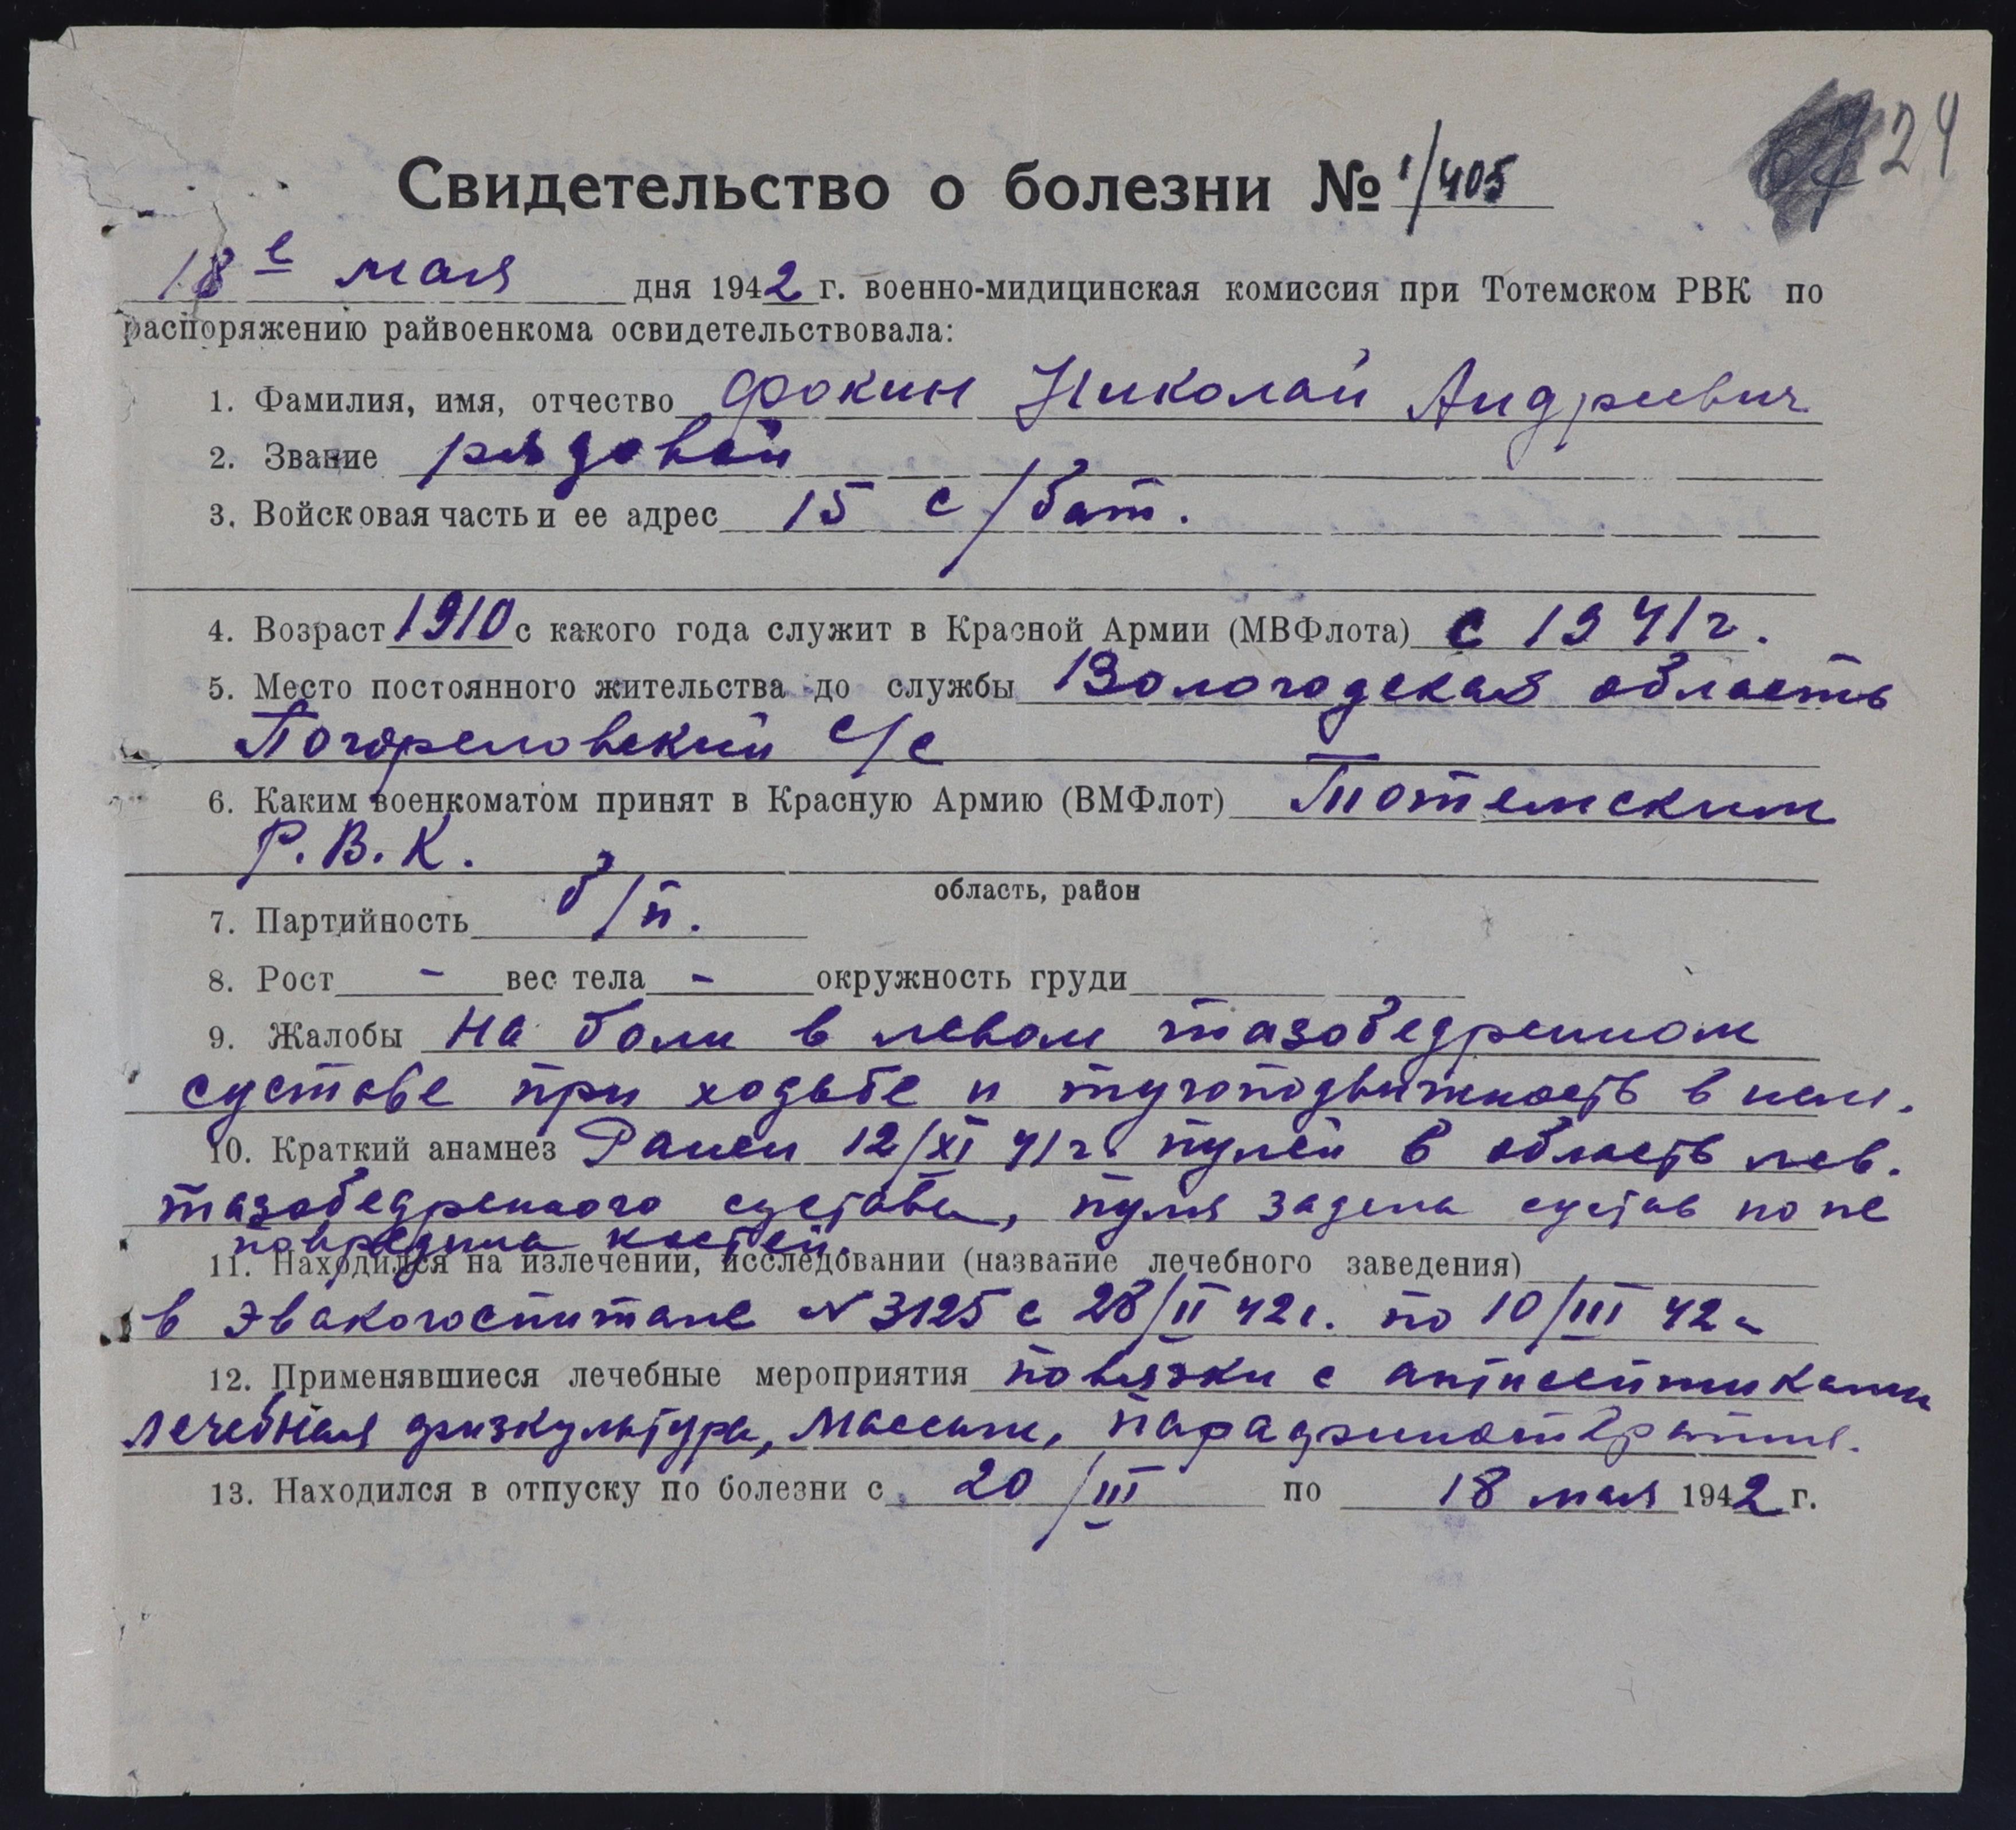 24
Свидетельство о болезни № 1/405
18 е мая дня 1942 г. военно-мидицинская комиссия при Тотемском РВК по
распоряжению райвоенкома освидетельствовала:
1. Фамилия, имя, отчество Фокин Николай Андреевич
2. Звание рядовой
3. Войсковая часть и ее адрес 15 с/бат.
4. Возраст 1910 с какого года служит в Красной Армии (МВФлота) с 1941 г.
5. Место постоянного жительства до службы Вологодская область
Погореловский с/с
6. Каким военкоматом принят в Красную Армию (ВМФлот) Тотемским
Р.В.К.
область, район
7. Партийность б/п.
8. Рост - вес тела - окружность груди
9. Жалобы На боли в левом тазобедренном
суставе при ходьбе и тугоподвижность в нем.
10. Краткий анамнез Ранен 12/XI 41 г. пулей в область лев.
тазобедренного сустава, пуля задела сустав но не
повредила костей.
11. Находился на излечении, исследовании (название лечебного заведения)
в эвакогоспитале N 3125 с 28/II 42 г. по 10/III 42 г
12. Применявшиеся лечебные мероприятия повязки с антисептиками
лечебная физкультура, массаж,
13. Находился в отпуску по болезни с 20/III по 18 мая 1942 г.